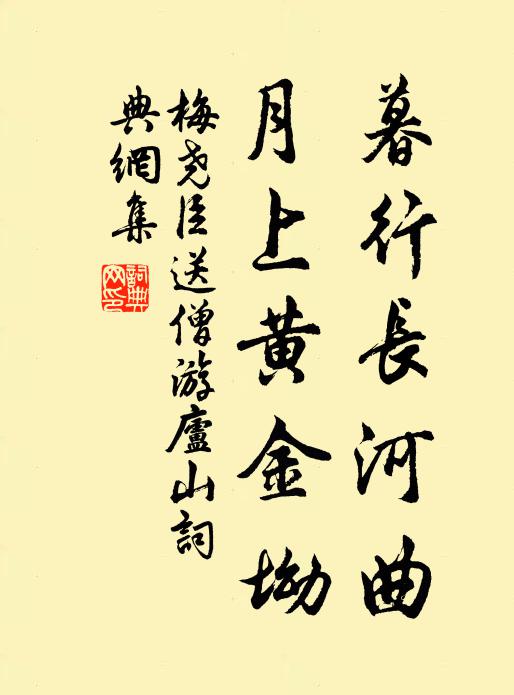 暮行長河曲
月上黄金坳
梅堯臣送僧游廬山詞
典網集
詞典網印